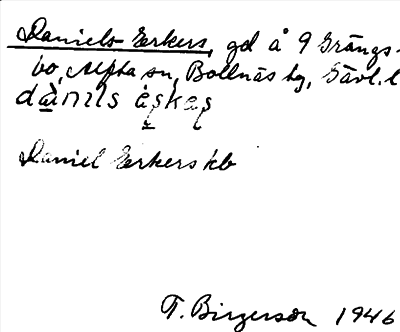 Daniels-Erkers, gd å 9 Grängs-
bo, Alfta sn, Bollnäs tg, Gävl. l
Daniel Erkers kb
T. Birgerson 1946